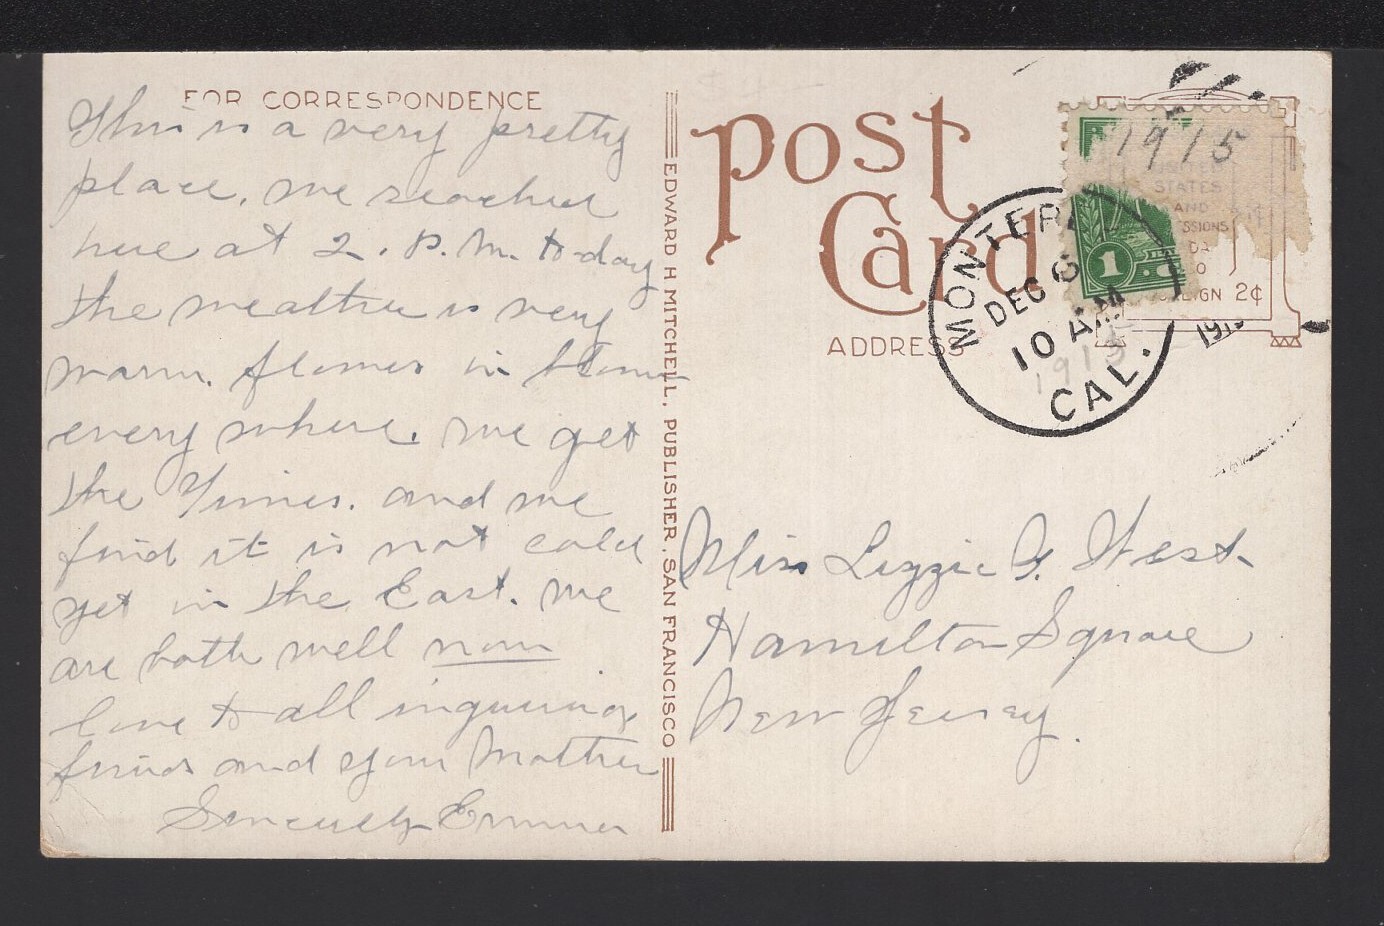 FOR CORRESPONDENCE
This is a very pretty
place, we reached
here at 2. P.M. to-day
the weather is very
warm. flowers in bloom
every where. we get
the Times. and we
find it is not cold
yet in the East. We
are both well now
love to all inquiring
friends and your Mother
Sincerely Emma
EDWARD H MITCHELL, PUBLISHER, SAN FRANCISCO
Post Card
ADDRESS
1915
UNITED
STATES
AND
2¢
1
MONTEREY
DEC 6
10 AM
1915
CAL.
Miss Lizzie G. West
Hamilton Square
New Jersey.